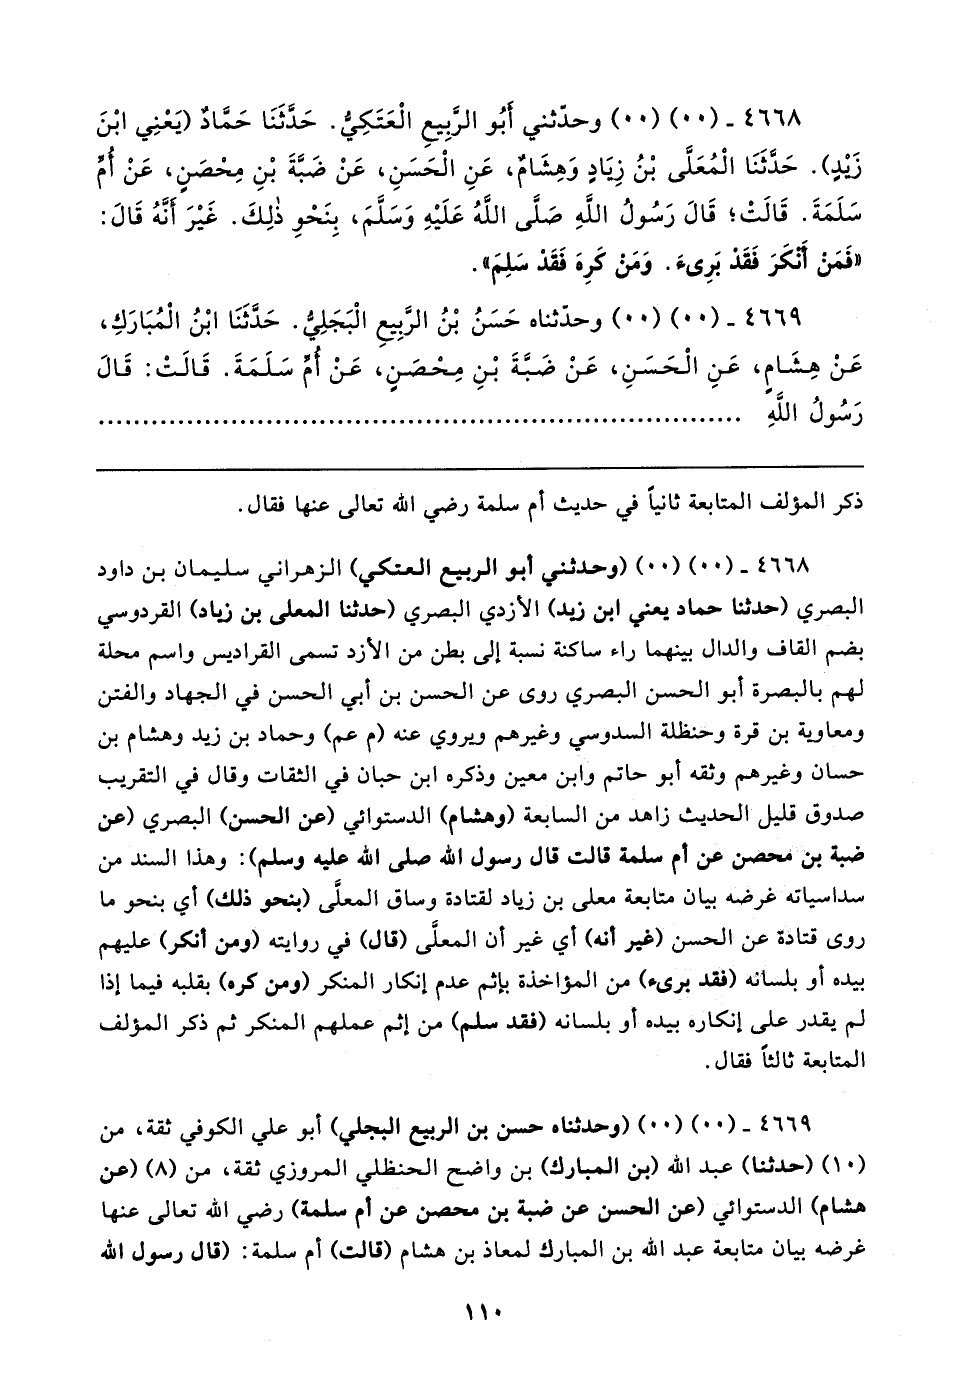 ٤٦٦٨ ـ (٠٠) (٠٠) وحدّثني أَبُو الرَّبِيعِ الْعَتَكِيُّ. حَدَّثَنَا حَمَّادٌ (يَعْنِي ابْنَ
زَيْدٍ). حَدَّثَنَا الْمُعَلَّى بْنُ زِيَادٍ وَهِشَامٌ، عَنِ الْحَسَنِ، عَنْ ضَبَّةَ بْنِ مِحْصَنٍ، عَنْ أُمِّ
سَلَمَةَ. قَالَتْ؛ قَالَ رَسُولُ اللَّهِ صَلَّى اللَّهُ عَلَيْهِ وَسَلَّمَ، بِنَحْوِ ذٰلِكَ. غَيْرَ أَنَّهُ قَالَ:
«فَمَنْ أَنْكَرَ فَقَدْ بَرِىءَ. وَمَنْ كَرِهَ فَقَدْ سَلِمَ».
٤٦٦٩ ـ (٠٠) (٠٠) وحدّثناه حَسَنُ بْنُ الرَّبِيعِ الْبَجَلِيُّ. حَدَّثَنَا ابْنُ الْمُبَارَكِ،
عَنْ هِشَامٍ، عَنِ الْحَسَنِ، عَنْ ضَبَّةَ بْنِ مِحْصَنٍ، عَنْ أُمِّ سَلَمَةَ. قَالَتْ: قَالَ
رَسُولُ اللَّهِ ..................................................................
ذكر المؤلف المتابعة ثانياً في حديث أم سلمة رضي الله تعالى عنها فقال.
٤٦٦٨ ـ (٠٠) (٠٠) (وحدثني أبو الربيع العتكي) الزهراني سليمان بن داود
البصري (حدثنا حماد يعني ابن زيد) الأزدي البصري (حدثنا المعلى بن زياد) القردوسي
بضم القاف والدال بينهما راء ساكنة نسبة إلى بطن من الأزد تسمى القراديس واسم محلة
لهم بالبصرة أبو الحسن البصري روى عن الحسن بن أبي الحسن في الجهاد والفتن
ومعاوية بن قرة وحنظلة السدوسي وغيرهم ويروي عنه (م عم) وحماد بن زيد وهشام بن
حسان وغيرهم وثقه أبو حاتم وابن معين وذكره ابن حبان في الثقات وقال في التقريب
صدوق قليل الحديث زاهد من السابعة (وهشام) الدستوائي (عن الحسن) البصري (عن
ضبة بن محصن عن أم سلمة قالت قال رسول الله صلى الله عليه وسلم): وهذا السند من
سداسياته غرضه بيان متابعة معلى بن زياد لقتادة وساق المعلَّى (بنحو ذلك) أي بنحو ما
روى قتادة عن الحسن (غير أنه) أي غير أن المعلَّى (قال) في روايته (ومن أنكر) عليهم
بيده أو بلسانه (فقد برىء) من المؤاخذة بإثم عدم إنكار المنكر (ومن كره) بقلبه فيما إذا
لم يقدر على إنكاره بيده أو بلسانه (فقد سلم) من إثم عملهم المنكر ثم ذكر المؤلف
المتابعة ثالثاً فقال.
٤٦٦٩ ـ (٠٠) (٠٠) (وحدثناه حسن بن الربيع البجلي) أبو علي الكوفي ثقة، من
(١٠) (حدثنا) عبد الله (بن المبارك) بن واضح الحنظلي المروزي ثقة، من (٨) (عن
هشام) الدستوائي (عن الحسن عن ضبة بن محصن عن أم سلمة) رضي الله تعالى عنها
غرضه بيان متابعة عبد الله بن المبارك لمعاذ بن هشام (قالت) أم سلمة: (قال رسول الله
١١٠